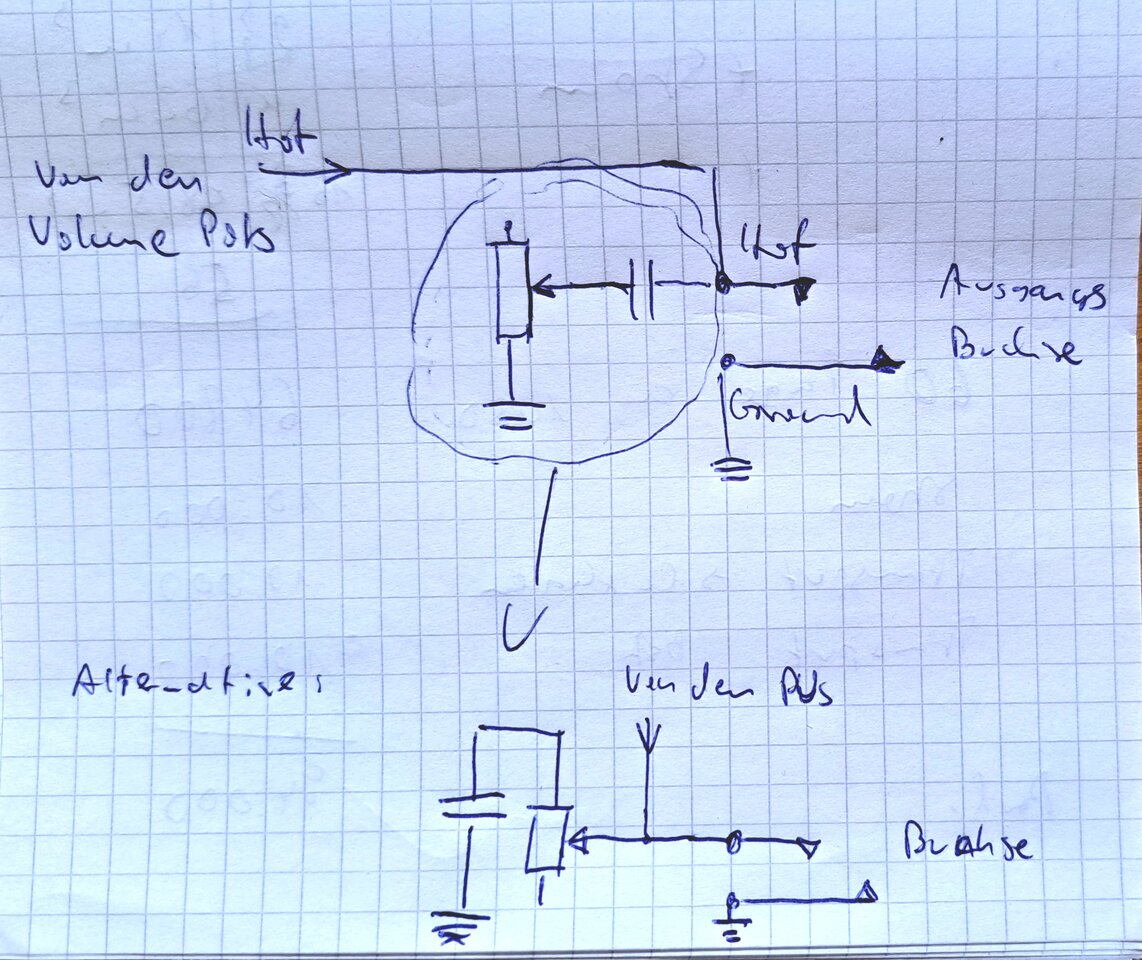 Hot
Von den
Volume Pots
Hot
Ausgangs
Buchse
Ground
Alternative:
Von den Pots
Buchse